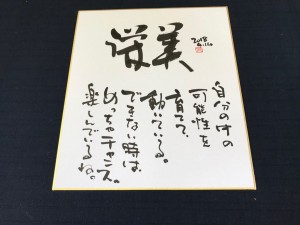 美
2018
自分の中の
可能性を
育てて
動いている。
できない時は
めっちゃチャンス。
楽しんでいるね。